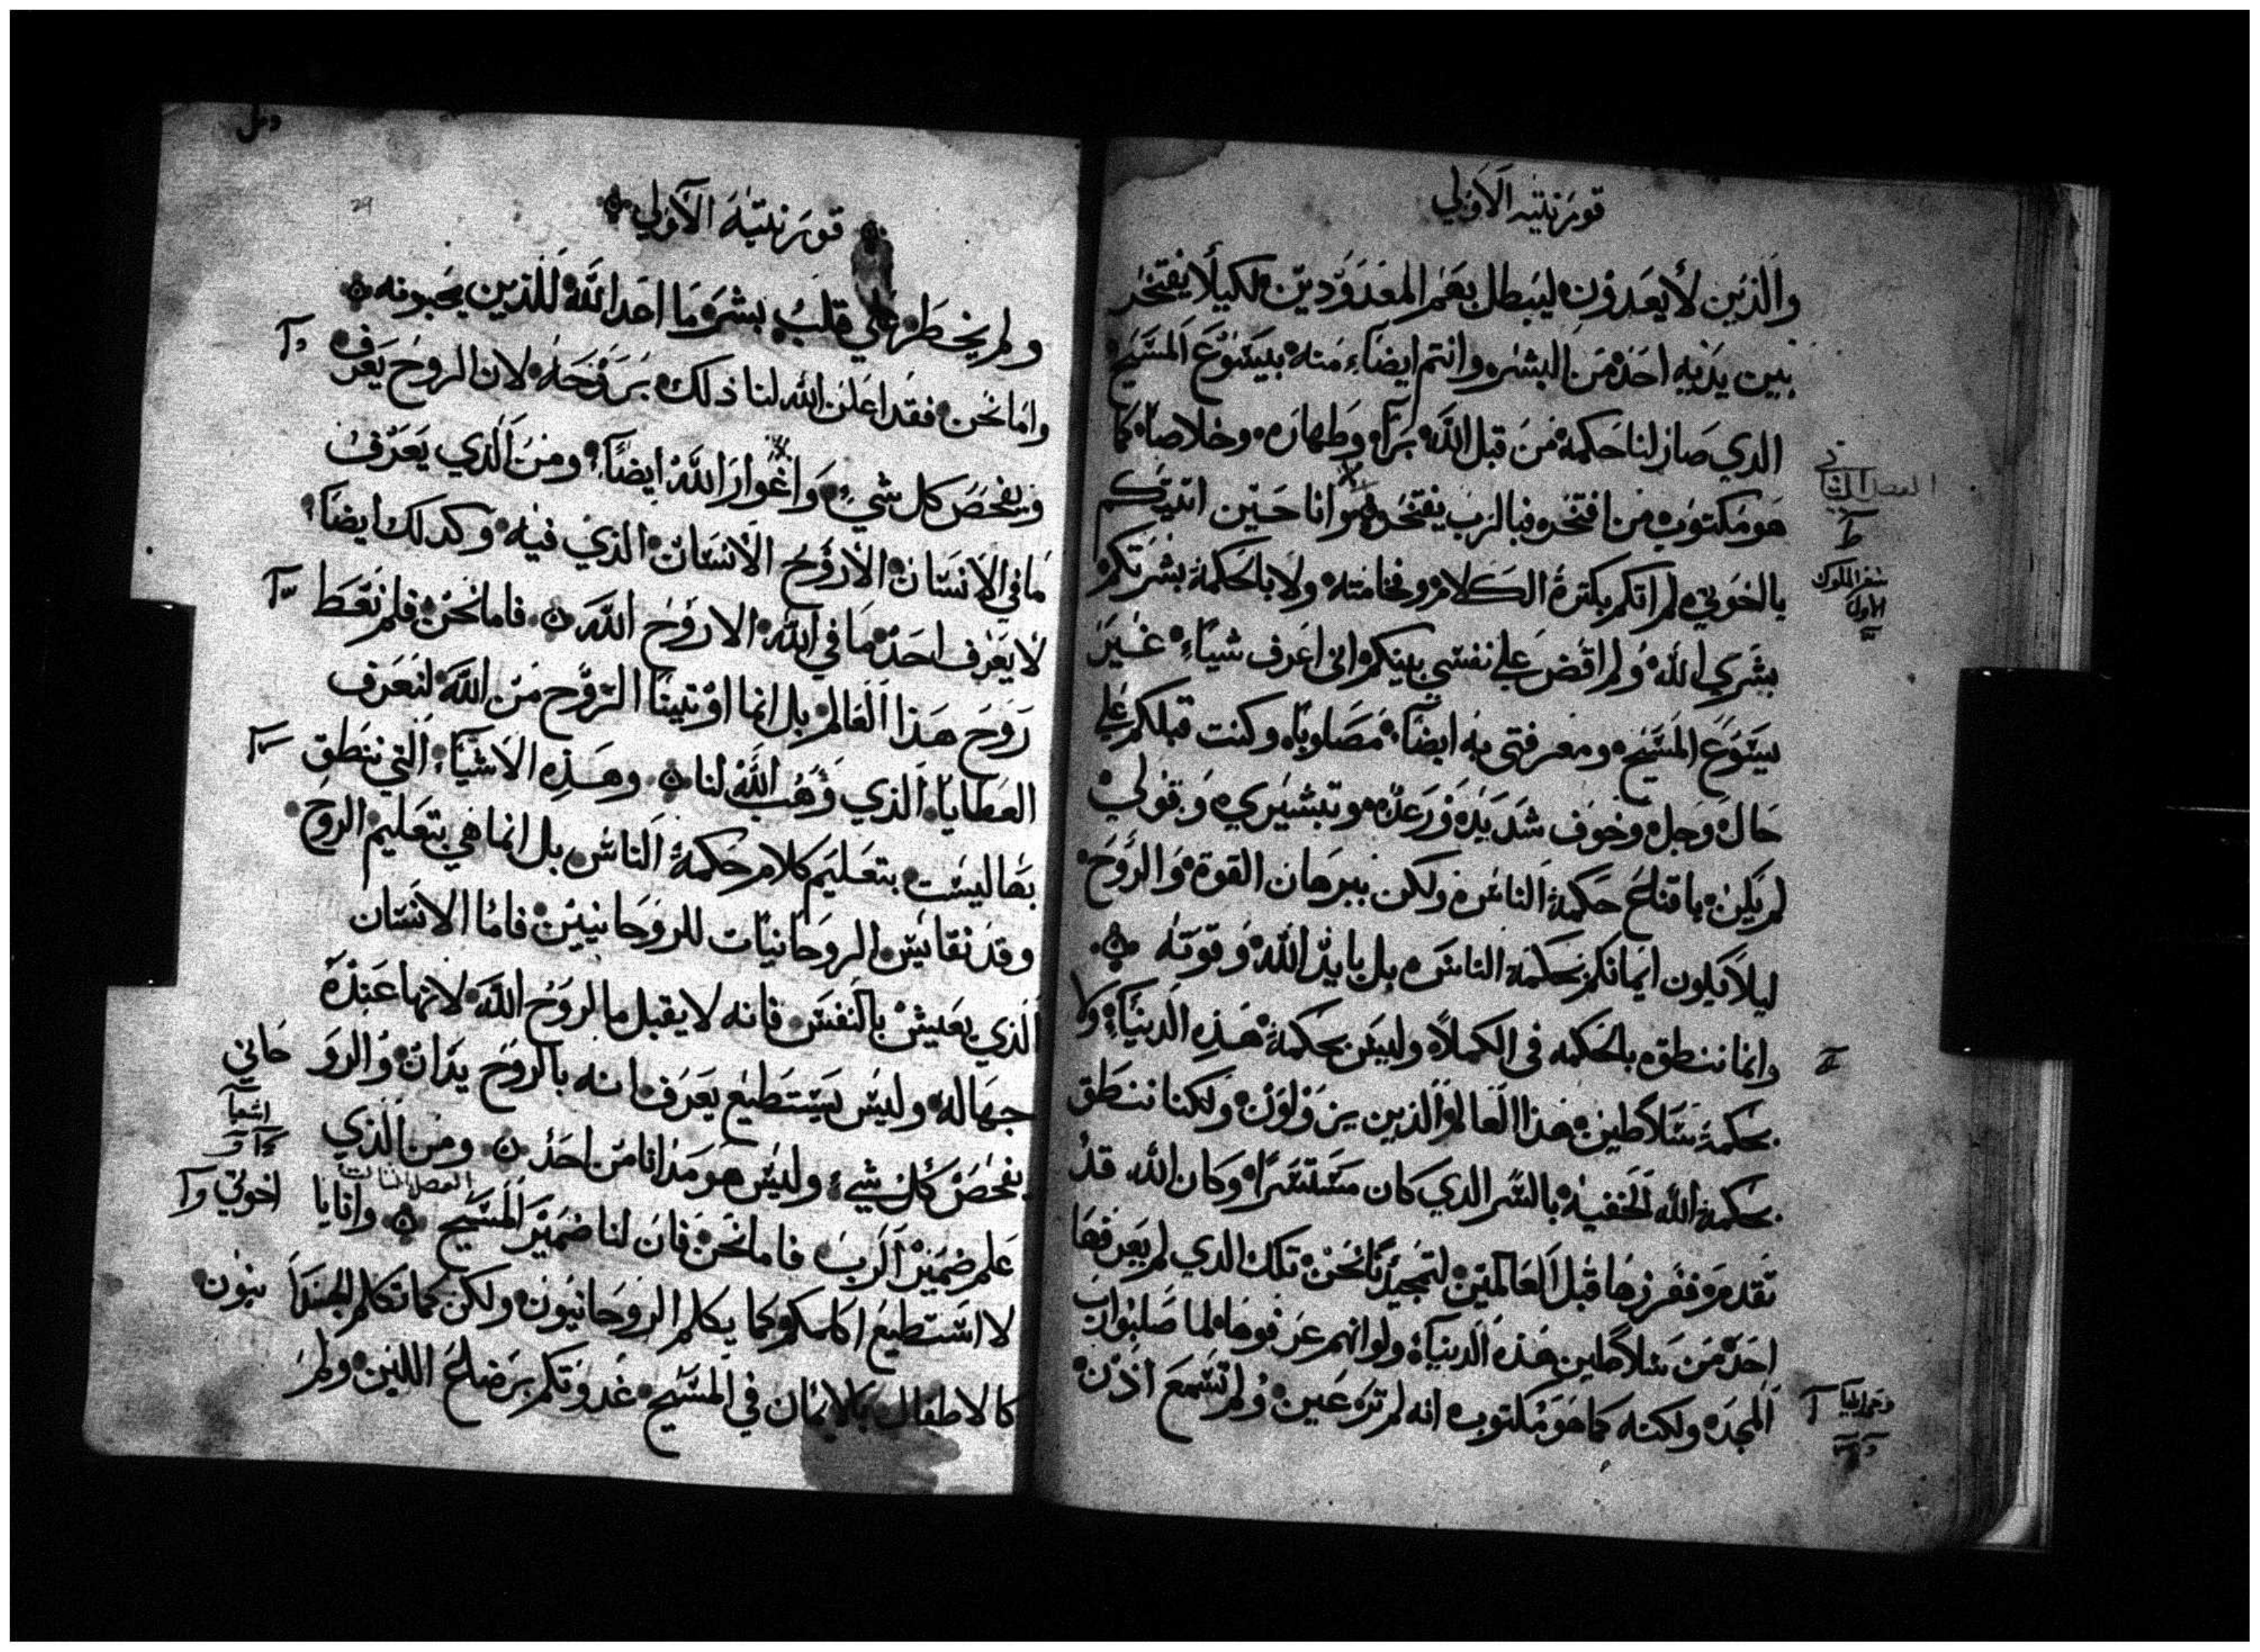 قورنتيه الاولي
والذين لا يعدون ليبطل بهم المعدودين لكيلا يفتخر
بين يديه احد من البشر وانتم ايضاء منه بيسوع المسيح
الدي صار لنا حكمة من قبل الله برا وطهاره وخلاصا كما
هو مكتوب من افتخر فبالرب يفتخر وانا حين اتيتكم
يا اخوتي لم اتكم بكثرة الكلام وفخامته ولا بالحكمة بشرتكم
بشري الله ولم اقض علي نفسي بينكم اني اعرف شيئاء غير
يسوع المسيح ومعرفتي به ايضاء مصلوبا وكنت قبلكم علي
حال وجل وخوف شديد ورعده وتبشيري وقولي
لم يكن باقناع حكمة الناس ولكن ببرهان القوة والروح
ليلا يكون ايمانكم بحكمة الناس بل بايد الله وقوته
وانما ننطق بالحكمه في الكملاء وليس بحكمة هذه الدنياء ولا
بحكمة سلاطين هذا العالم الذين يزولون ولكنا ننطق
بحكمة الله الخفية بالسر الدي كان مستتسرا وكان الله قد
تقدم ففرزها قبل العالمين لتمجيدنا نحن تلك الدي لم يعرفها
احد من سلاطين هذه الدنياء ولو انهم عرفوها لما صلبوا رب
المجد ولكنه كما هو مكتوب انه لم تره عين ولم تسمع اذن
الفصل الثاني
سفر الملوك
الاول
قورنتية الاولي
ولم يخطر علي قلب بشر ما اعد الله للذين يحبونه
واما نحن فقد اعلن الله لنا ذلك بروحه لان الروح يعرف
ويفحص كل شيء واغوار الله ايضاء ومن الذي يعرف
ما في الانسان الا روح الانسان الذي فيه وكدلك ايضا
لا يعرف احد ما في الله الا روح الله فاما نحن فلم نعط
روح هذا العالم بل انما اوتينا الروح من الله لنعرف
العطايا الذي وهب الله لنا وهذه الاشياء التي ننطق
بها ليست بتعليم كلام حكمة الناس بل انما هي بتعليم الروح
وقد نقائس الروحانيات للروحانيين فاما الانسان
الذي يعيش بالنفس فانه لا يقبل ما لروح الله لانها عنده
جهاله وليس يستطيع يعرف انه بالروح يدان والروحاني
يفحص كل شيء وليس هو مدانا من احد ومن الذي
اشعيا
علم ضمير الرب فاما نحن فان لنا ضمير المسيح وانا يا اخوتي
الفصل الثالث
لا استطيع اكلمكم كما يكلم الروحانيون ولكن كما تكلم الجسدانيون
كالاطفال بالايمان في المسيح غدوتكم برضاع اللبن ولم